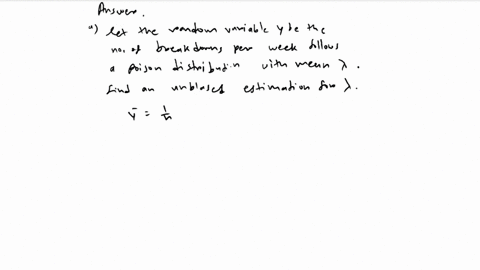 Answer.
a) let the random variable y be the
no. of breakdowns per week follows
a poison distribution with mean λ.
find an unbiased estimation for λ.
ȳ = 1/n